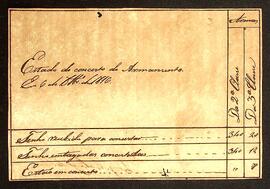 Armas
Estado do concerto do Armamento
Em 6 de de 1816.
Da 2ª Classe
Da 3ª Classe
Tenho recebido para concertar 340 20
Tenho entregado concertadas 340 12
Existe em concerto " 8